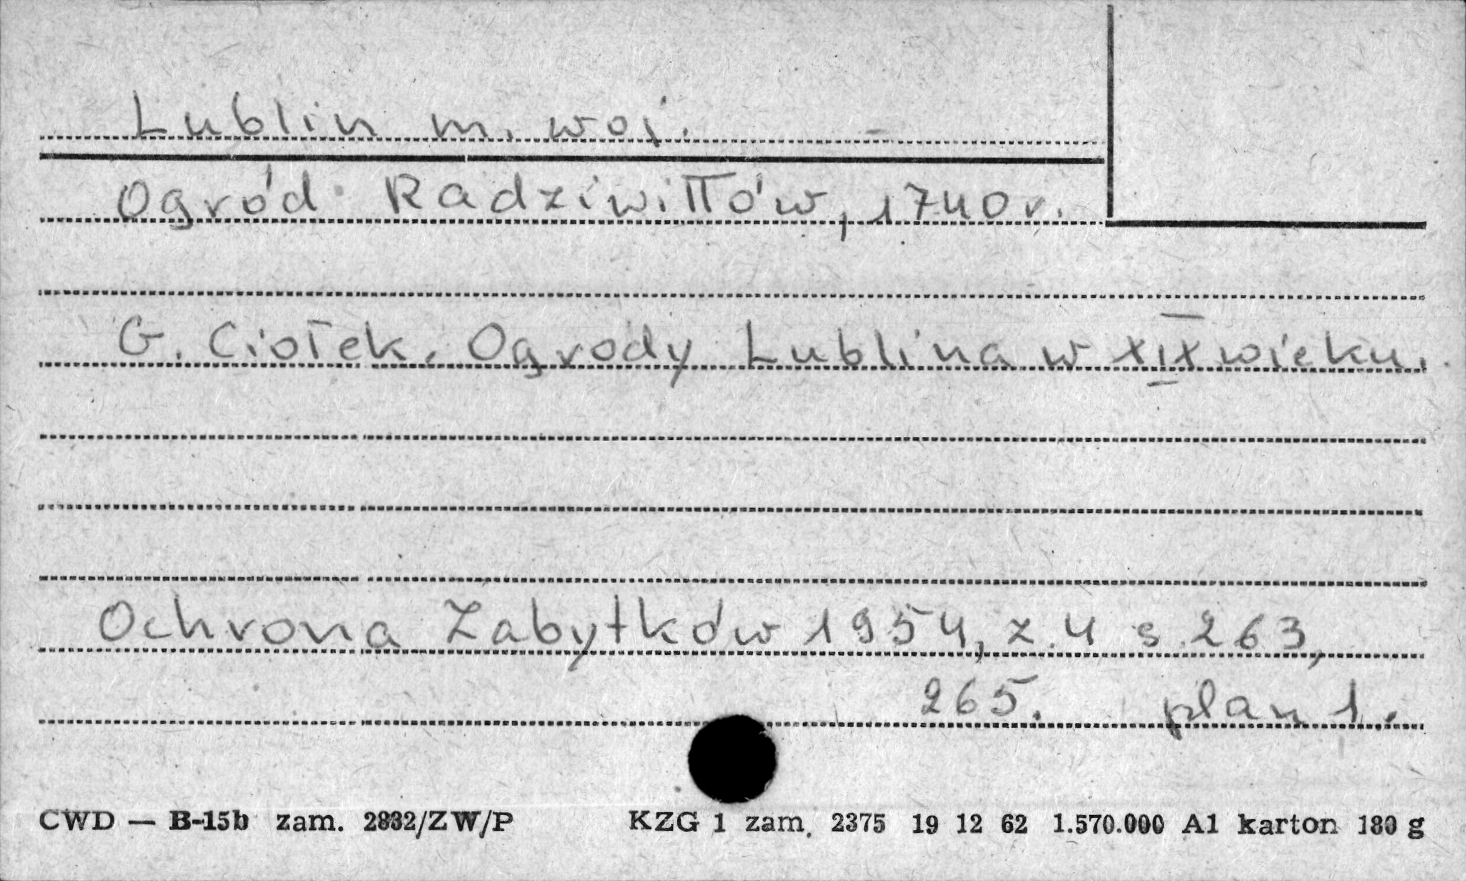 Lublin m. woj. -
Ogród Radziwiłłów, 1740 r.
G. Ciołek. Ogrody Lublina w XIX wieku.
Ochrona Zabytków 1954, z. 4 s. 263,
265. plan 1.
CWD — B-15b zam. 2832/ZW/P KZG 1 zam. 2375 19 12 62 1.570.000 A1 karton 180 g